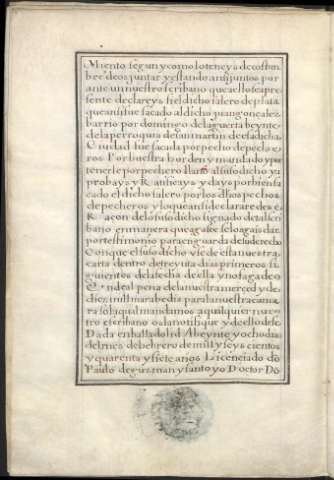 Miento segun y como lo teneys de costum
bre de os juntar y estando ansi juntos por
ante un nuestro scribano que a ello sea pre
sente declareys si el dicho salero de plata
que ansi fue sacado al dicho juan gonçalez
barrio por domingo de la guerta beynte
de la perroquia de san martin de esa dicha
Ciudad fue sacada por pecho de peche
ros Por buestra horden y mandado y por
tenerle por pechero llano al suso dicho y a
probays y Ratificays y days por bien sa
cado el dicho salero por los dhos pechos
de pecheros y lo que ansi declararedes e
Raçon de lo suso dicho signado de tal scri
bano en manera que aga fee se lo agais dar
por testimonio para en guarda de su derecho
Con que el suso dicho use de esta nuestra
carta dentro de treynta dias primeros si
guientes de la fecha de ella y no fagades
en de al pena de la nuestra merced y de
diez mill marabedis para la nuestra cama
ra so la qual mandamos a qualquier nues
tro escribano os la notifique y de ello de fe
Dada en balladolid A beynte y ocho dias
del mes de hebrero de mill y seys cientos
y quarenta y siete años Licenciado don
Paulo de guzman y santoyo Doctor Don